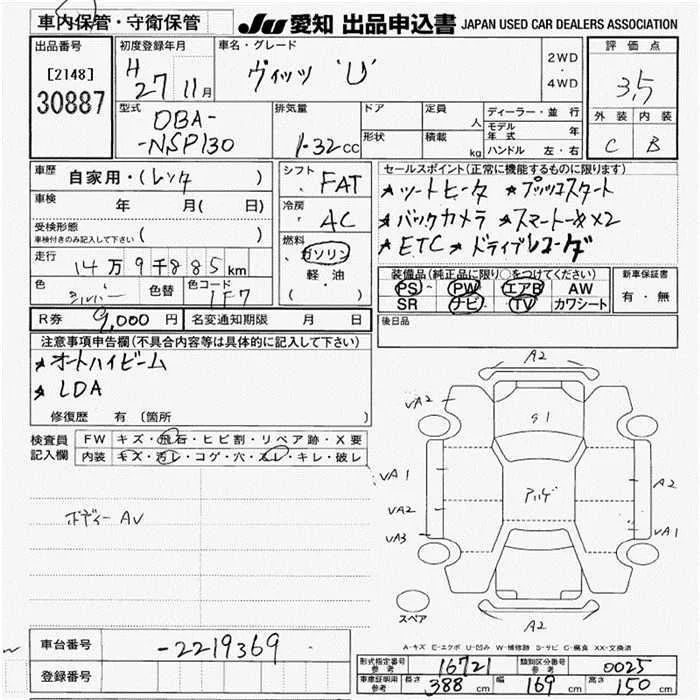 車内保管・守衛保管 JU 愛知 出品申込書 JAPAN USED CAR DEALERS ASSOCIATION
出品番号 [2148] 30887
初度登録年月 H 27 11月
車名・グレード ヴィッツ 'U'
2WD・4WD
評価点 3,5
外装 C 内装 B
型式 DBA-NSP130
排気量 1.32cc
ドア
形状
定員 人
積載 kg
ディーラー・並行
モデル年式 年
ハンドル 左・右
車歴 自家用・(レンタ )
車検 年 月( 日)
受検形態
車検付きのみ記入して下さい ( )
走行 14万9千885km
色 シルバー 色替 色コード 1F7
シフト FAT
冷房 AC
燃料 ガソリン
軽・油
( ・ )
セールスポイント(正常に機能するものに限ります)
★シートヒータ ★プッシュスタート
★バックカメラ ★スマートキー×2
★ETC ★ドライブレコーダ
装備品(純正品に限り○をつけてください)
PS PW エアB AW
SR ナビ TV カワシート
新車保証書
有・無
後日品
R券 9,000円 名変通知期限 月 日
注意事項申告欄(不具合内容等は具体的に記入して下さい)
★オートハイビーム
★LDA
修復歴 有〔箇所 〕
検査員記入欄
FW キズ・飛石・ヒビ割・リペア跡・X要
内装 キズ・汚レ・コゲ・穴・スレ・キレ・破レ
ボディー AV
A2
VA2
S1
VA1
VA2
VA3
A2
VA1
A2
スペア
A-キズ E-エクボ U-凹み W-補修跡 S-サビ C-腐食 XX-交換済
車台番号 -2219369
登録番号
形式指定番号 参考 16721 類別区分番号 参考 0025
車庫証明用 参考 長さ 388cm 幅 169cm 高さ 150cm